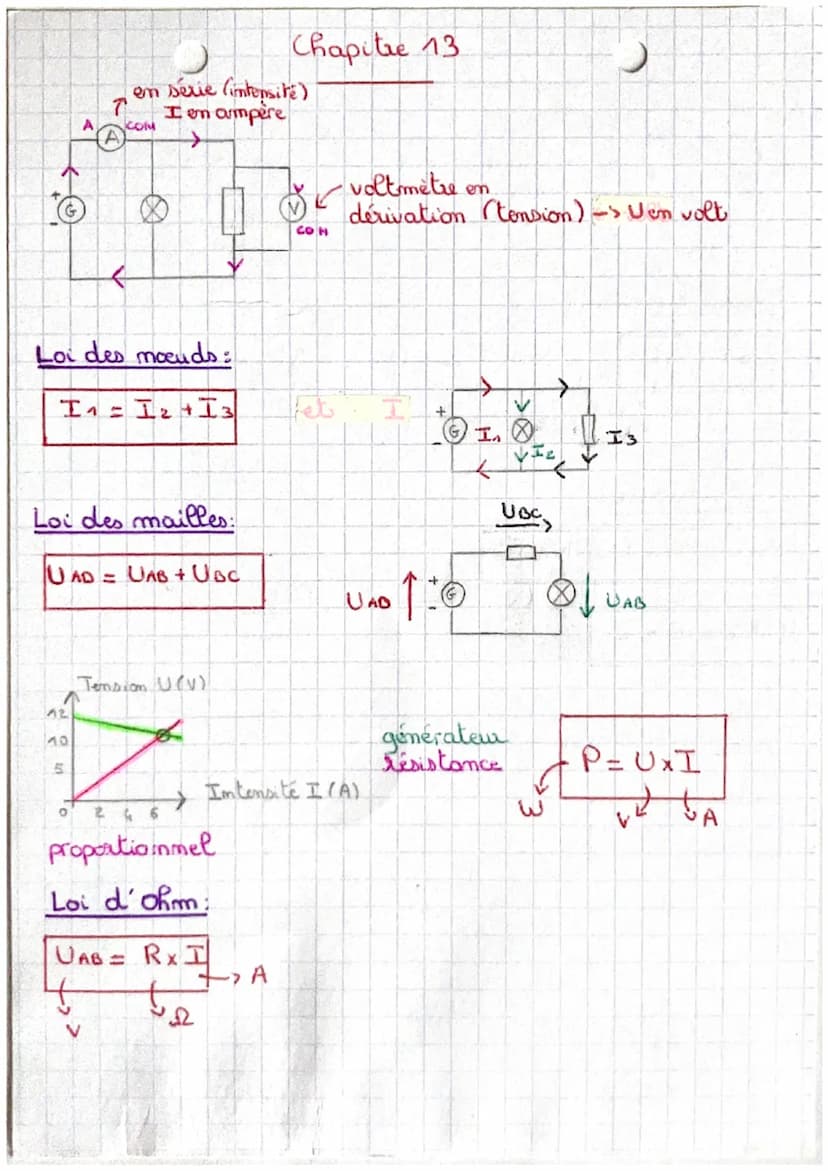 Chapitre 13
en série (intensité)
I en ampère
A
COM
A
+
G
-
V
V
COM
voltmètre en
dérivation (tension) -> U en volt
Loi des nœuds :
I1 = I2 + I3
et I
+
G
-
I1
I2
I3
Loi des mailles :
UBC
UAD = UAB + UBC
UAD
+
G
-
UAB
Tension U(V)
12
10
5
0 2 4 6
Intensité I (A)
générateur
résistance
P = U x I
W
V
A
proportionnel
Loi d'Ohm :
UAB = R x I
A
V
Ω